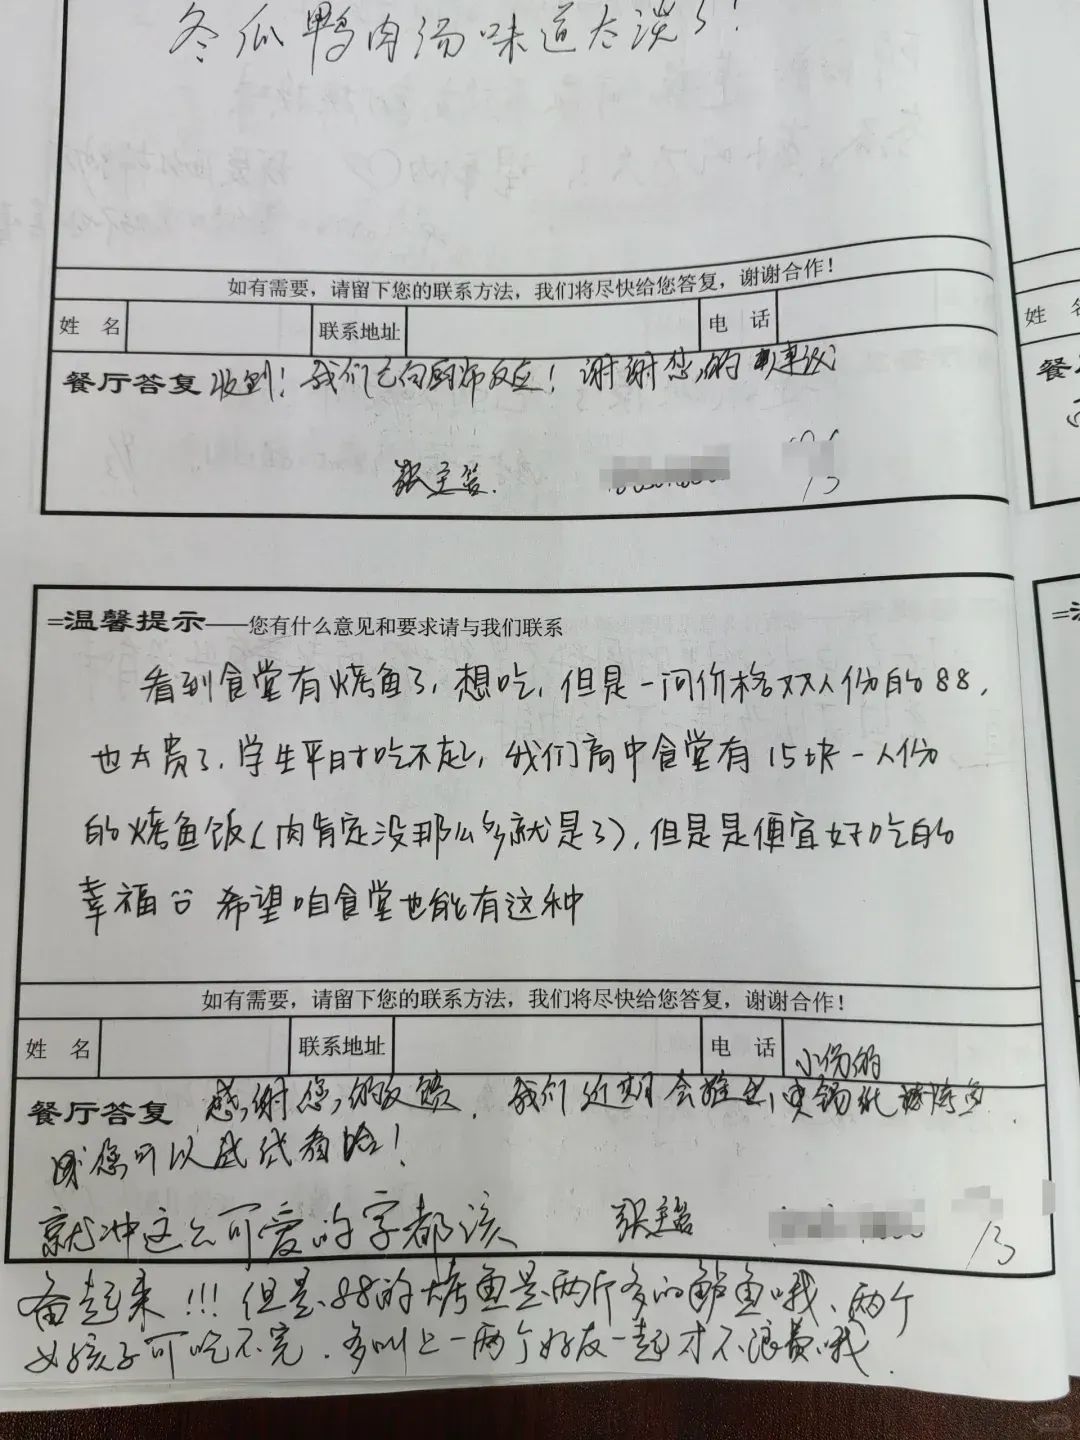 冬瓜鸭肉汤味道太淡了！
如有需要，请留下您的联系方法，我们将尽快给您答复，谢谢合作！
姓 名 联系地址 电 话
姓 名
餐厅答复 收到！我们已向厨师反应！谢谢您的建议
餐
13
=温馨提示——您有什么意见和要求请与我们联系
看到食堂有烤鱼了，想吃，但是一问价格双人份的88，
也太贵了，学生平时吃不起，我们高中食堂有15块一人份
的烤鱼饭（肉肯定没那么多就是了），但是是便宜好吃的
幸福 希望咱食堂也能有这种
如有需要，请留下您的联系方法，我们将尽快给您答复，谢谢合作！
姓 名 联系地址 电 话
小份的
餐厅答复 感谢您的反馈，我们近期会推出
您可以试试看哈！
就冲这么可爱的字都该
13
备起来！！！但是88的烤鱼是两斤多的鲈鱼哦、两个
女孩子可吃不完．多叫上一两个好友一起才不浪费哦．